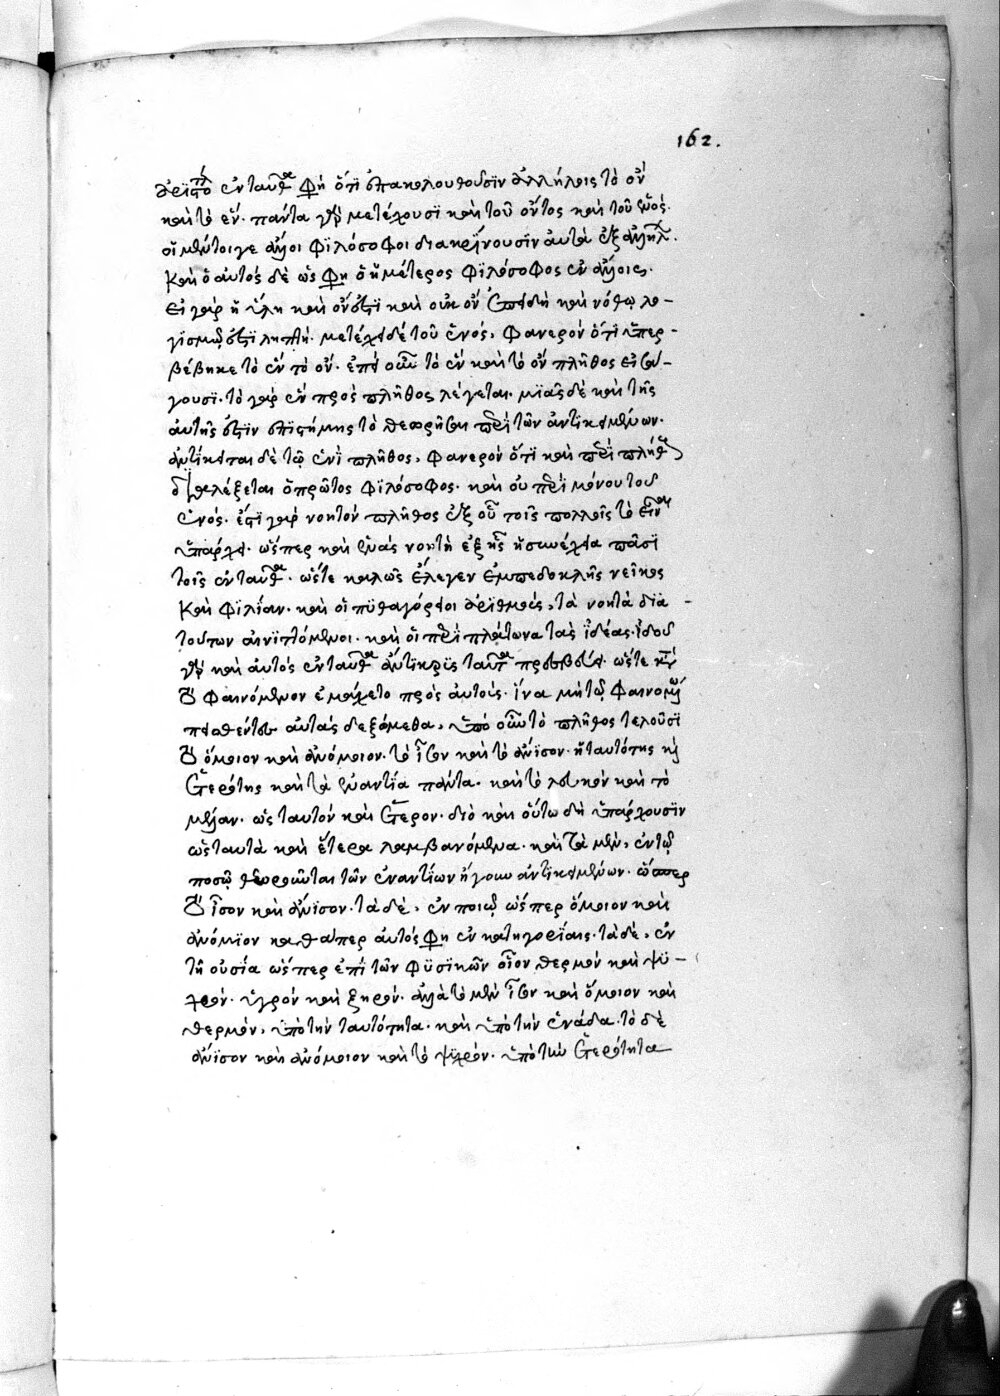 162.
ἀριστο ἐνταῦθα φη ὅτι ἐπακολουθοῦσιν ἀλλήλοις τὸ ὂν
καὶ τὸ ἕν. πάντα γὰρ μετέχουσι καὶ τοῦ ὄντος καὶ τοῦ ἑνός.
οἱ μέντοιγε ἄλλοι φιλόσοφοι διακρίνουσιν αὐτὰ ἐξ ἀλλήλ.
καὶ ὁ αὐτὸς δὲ ὥς φη ὁ ἡμέτερος φιλόσοφος ἐν ἄλλοις.
εἰ γὰρ ἡ ὕλη καὶ ὂν ἐστὶ καὶ οὐκ ὂν ἐπειδὴ καὶ νόθῳ λο-
γισμῷ ἐστὶ ληπτή. μετέχει δὲ τοῦ ἑνός, φανερὸν ὅτι ὑπερ-
βέβηκε τὸ ἓν τὸ ὄν. ἐπεὶ οὖν τὸ ἓν καὶ τὸ ὂν πλῆθος εἰσά-
γουσι. τὸ γὰρ ἓν πρὸς πλῆθος λέγεται. μιᾶς δὲ καὶ τῆς
αὐτῆς ἐστὶν ἐπιστήμης τὸ θεωρῆσαι περὶ τῶν ἀντικειμένων.
ἀντίκειται δὲ τῷ ἑνὶ πλῆθος, φανερὸν ὅτι καὶ περὶ πλήθους
διαλέξεται ὁ πρῶτος φιλόσοφος. καὶ οὐ περὶ μόνου τοῦ
ἑνός. ἔστι γὰρ νοητὸν πλῆθος ἐξ οὗ τοῖς πολλοῖς τὸ εἶναι
ὑπάρχει. ὥσπερ καὶ ἑνὰς νοητὴ ἐξ ἧς ἡ συνέχεια πᾶσι
τοῖς ἐνταῦθα. ὥστε καλῶς ἔλεγεν ἐμπεδοκλῆς νεῖκος
καὶ φιλίαν. καὶ οἱ πυθαγόρειοι ἀριθμούς, τὰ νοητὰ διὰ
τούτων αἰνιττόμενοι. καὶ οἱ περὶ πλάτωνα τὰς ἰδέας. ἰδοὺ
γὰρ καὶ αὐτὸς ἐνταῦθα ἄντικρυς ταῦτα πρεσβεύει. ὥστε κατὰ
τὸ φαινόμενον ἐμάχετο πρὸς αὐτούς. ἵνα μὴ τῷ φαινομένῳ
πεισθέντες αὐτὰς δεξώμεθα, ὑπὸ οὖν τὸ πλῆθος τελοῦσι
τὸ ὅμοιον καὶ ἀνόμοιον. τὸ ἶσον καὶ τὸ ἄνισον. ἡ ταυτότης καὶ
ἑτερότης καὶ τὰ ἐναντία πάντα. καὶ τὸ λευκὸν καὶ τὸ
μέλαν. ὡς ταυτὸν καὶ ἕτερον. διὸ καὶ οὕτω δὴ ὑπάρχουσιν
ὡς ταυτὰ καὶ ἕτερα λαμβανόμενα. καὶ τὰ μὲν, ἐν τῷ
ποσῷ θεωροῦνται τῶν ἐναντίων ἤγουν ἀντικειμένων. ὥσπερ
τὸ ἶσον καὶ ἄνισον. τὰ δὲ, ἐν ποιῷ ὥσπερ ὅμοιον καὶ
ἀνόμοιον καθάπερ αὐτός φη ἐν κατηγορίαις. τὰ δὲ, ἐν
τῇ οὐσίᾳ ὥσπερ ἐπὶ τῶν φυσικῶν οἷον θερμὸν καὶ ψυ-
χρόν. ὑγρὸν καὶ ξηρόν. ἀλλὰ τὸ μὲν ἶσον καὶ ὅμοιον καὶ
θερμὸν, ὑπὸ τὴν ταυτότητα. καὶ ὑπὸ τὴν ἑνάδα. τὸ δὲ
ἄνισον καὶ ἀνόμοιον καὶ τὸ ψυχρόν. ὑπὸ τὴν ἑτερότητα